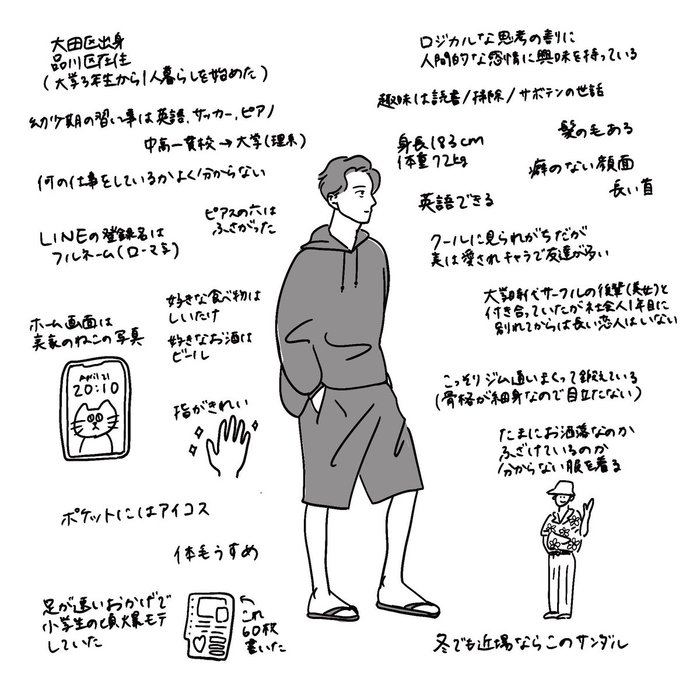 大田区出身
品川区在住
(大学3年生から1人暮らしを始めた)
幼少期の習い事は英語、サッカー、ピアノ
中高一貫校→大学(理系)
何の仕事をしているかよく分からない
ピアスの穴は
ふさがった
LINEの登録名は
フルネーム(ローマ字)
好きな食べ物は
しいたけ
好きなお酒は
ビール
ホーム画面は
実家のねこの写真
April 21
20:10
指がきれい
ポケットにはアイコス
体毛うすめ
足が速いおかげで
小学生の頃爆モテ
していた
これ
60枚
書いた
ロジカルな思考の割に
人間的な感情に興味を持っている
趣味は読書/掃除/サボテンの世話
身長183cm
体重72kg
髪の毛ある
癖のない顔面
長い首
英語できる
クールに見られがちだが
実は愛されキャラで友達が多い
大学時代サークルの後輩(美女)と
付き合っていたが社会人1年目に
別れてからは長い恋人はいない
こっそりジム通いまくって鍛えている
(骨格が細身なので目立たない)
たまにお洒落なのか
ふざけているのか
分からない服を着る
冬でも近場ならこのサンダル